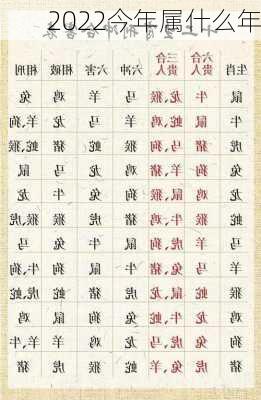 2022今年属什么年
生肖 六合贵人 三合贵人 六冲 六害 相破 相刑
鼠 牛 龙,猴 马 羊 鸡 兔
牛 鼠 蛇,鸡 羊 马 龙 羊,狗
虎 猪 马,狗 猴 蛇 猪 蛇,猴
兔 狗 羊,猪 鸡 龙 马 鼠
龙 鸡 鼠,猴 狗 兔 牛 龙
蛇 猴 牛,鸡 猪 虎 猴 虎,猴
马 羊 虎,狗 鼠 牛 兔 马
羊 马 兔,猪 牛 鼠 狗 牛,狗
猴 蛇 鼠,龙 虎 猪 蛇 虎,蛇
鸡 龙 牛,蛇 兔 狗 鼠 鸡
狗 兔 虎,马 龙 鸡 羊 牛,羊
猪 虎 兔,羊 蛇 猴 虎 猪